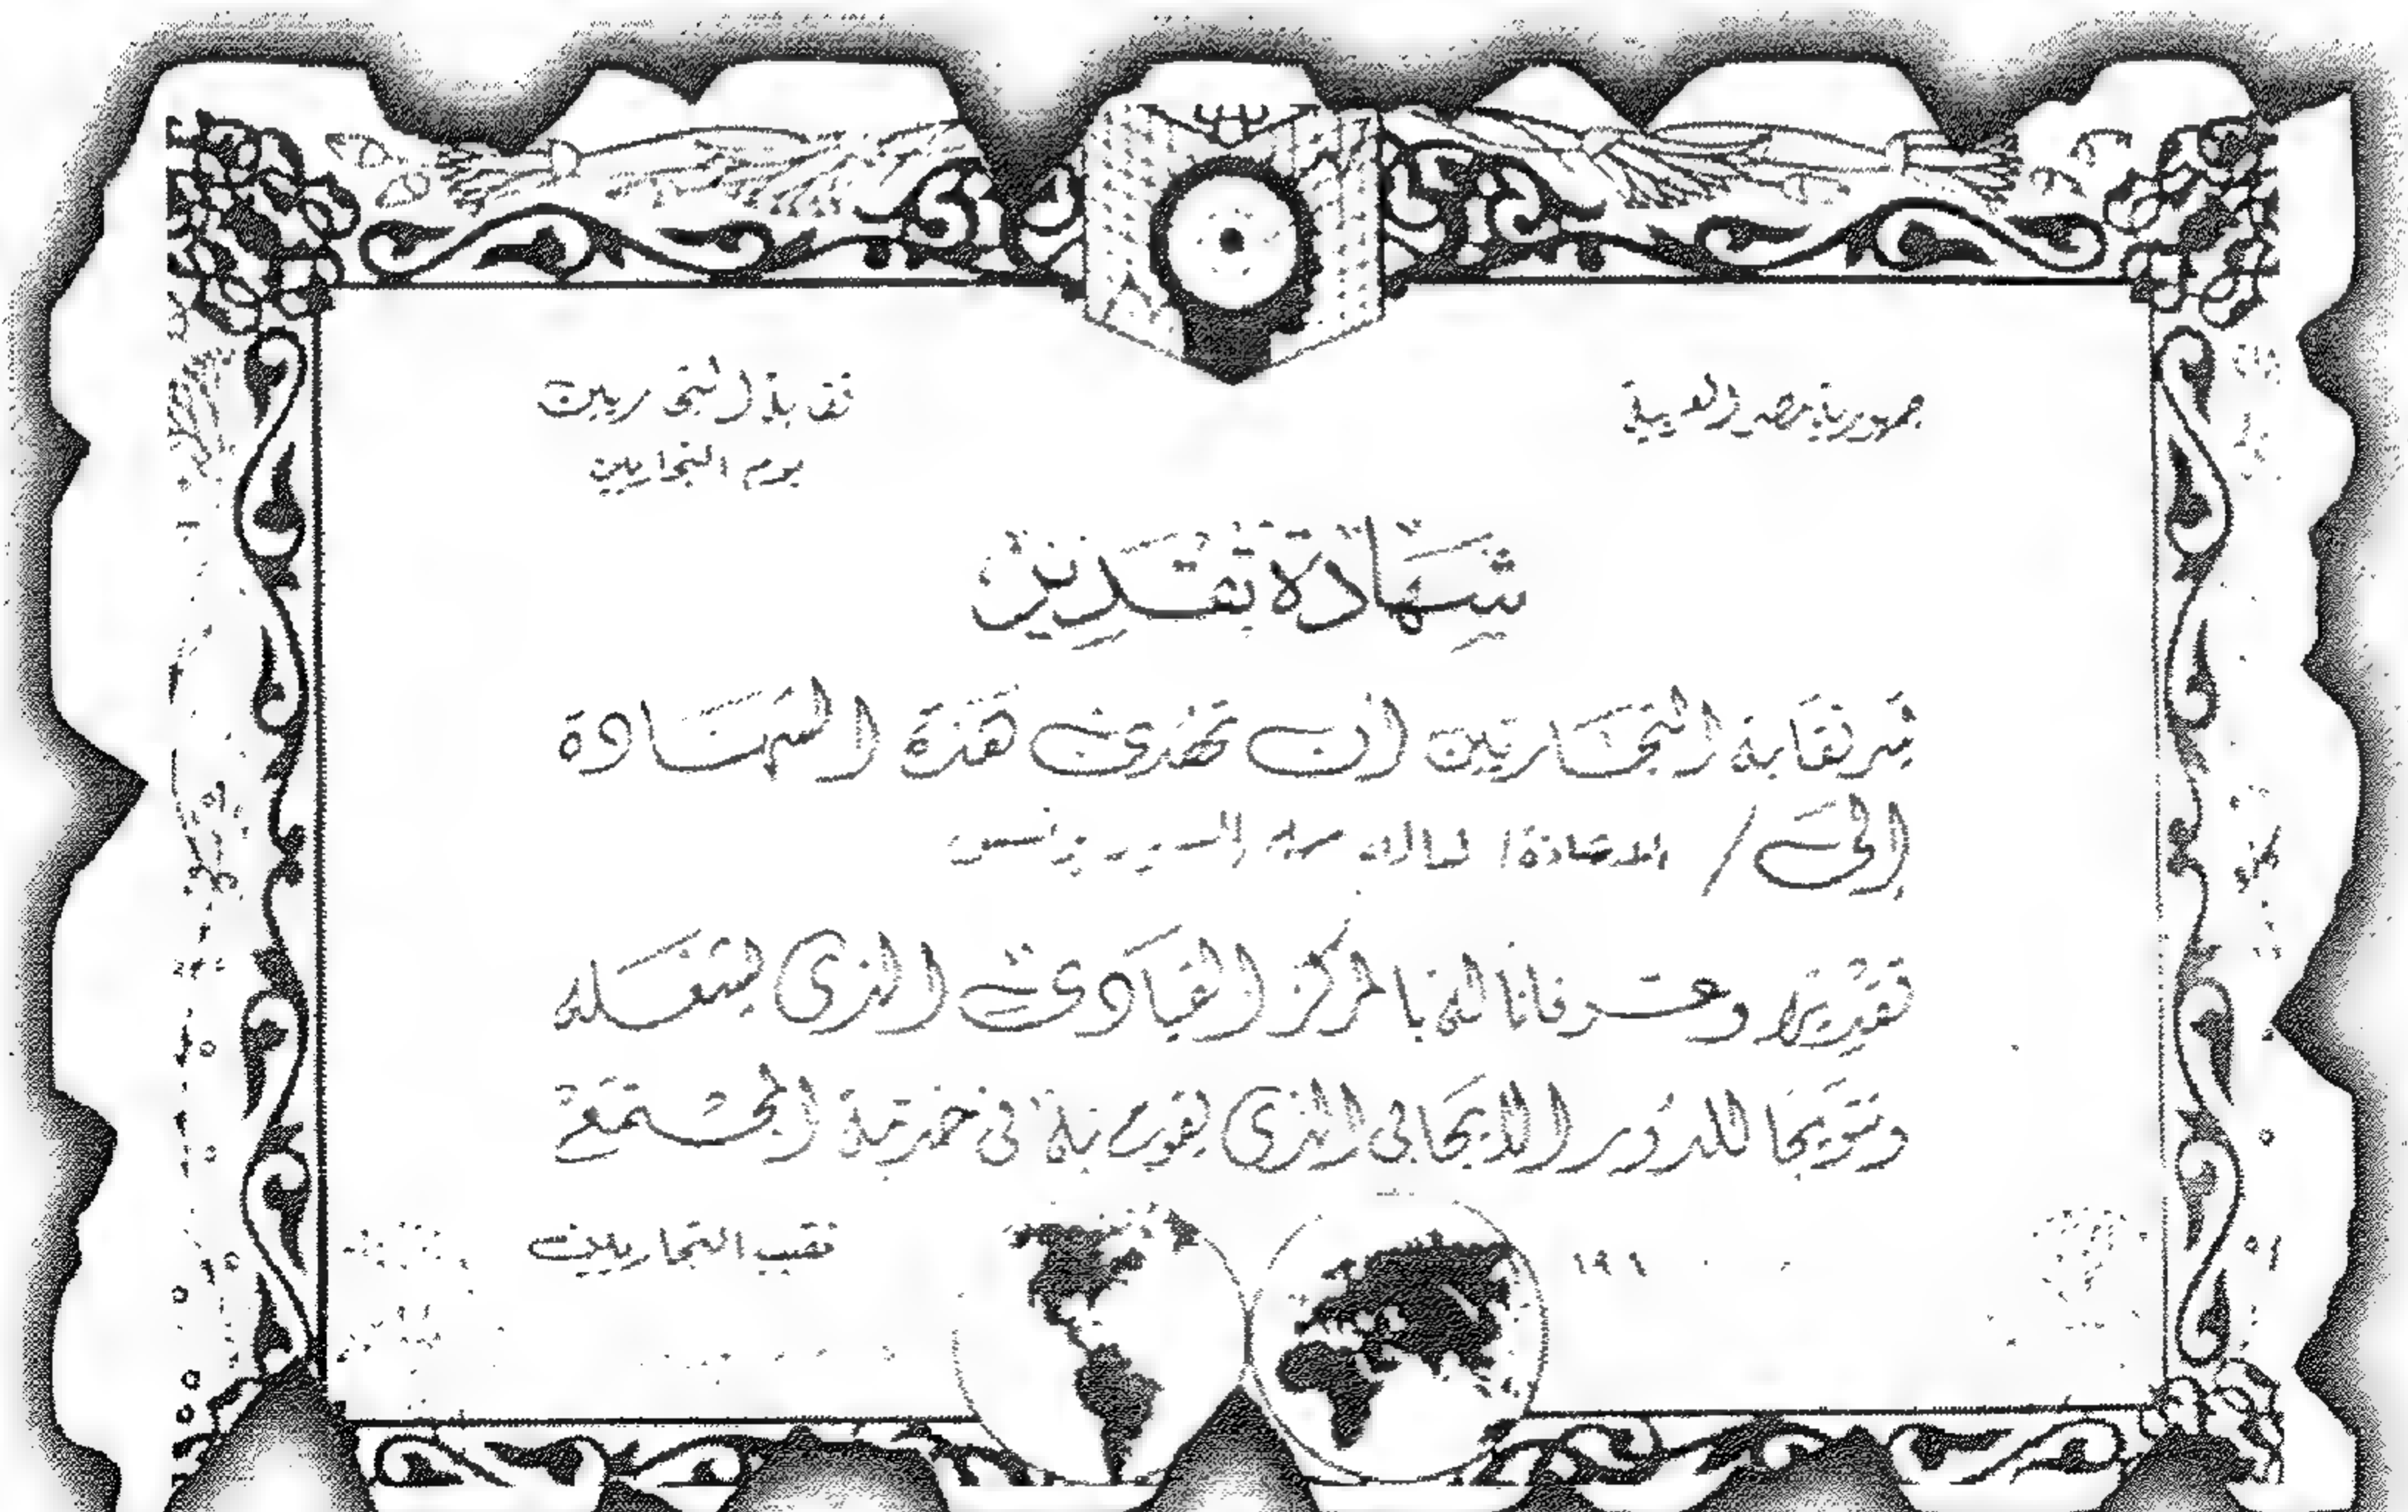 جمهورية مصر العربية
نقابة التجاريين
يوم التجاريين
شهادة تقدير
يسر نقابة التجاريين أن تهدى هذه الشهادة
إلى / السيد يونس
تقديرًا وعرفانا له بالمركز القيادى الذى يشغله
وتتويجا للدور الايجابى الذى يقوم به فى خدمة المجتمع
نقيب التجاريين
١٩٩